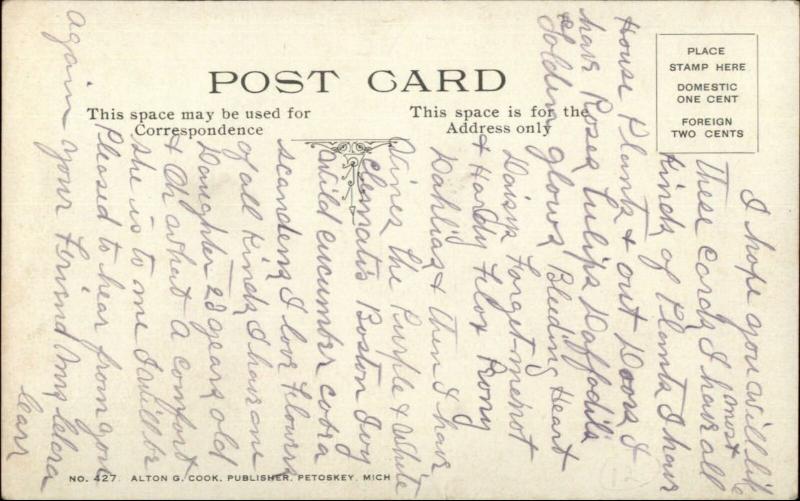 POST CARD
This space may be used for
Correspondence
This space is for the
Address only
PLACE
STAMP HERE
DOMESTIC
ONE CENT
FOREIGN
TWO CENTS
I hope you will like
These cards I have all
most
Kinds of Plants I have
House Plants & out Doors I
have Roses Tulips Daffodils
& Golden glows Bleeding Heart
Daisys Forget-me-not
& Hardy Flox Peony
Dahlias & then I have
Vines the Purple & White
Clematis Boston Ivy
Wild cucumber cobra
scandens I love Flowers
of all Kinds I have one
Daughter 23 years old
& Oh what A comfort
she is to me I will be
Pleased to hear from you
again your Friend Mrs Clora
Carr
NO. 427. ALTON G. COOK, PUBLISHER, PETOSKEY, MICH